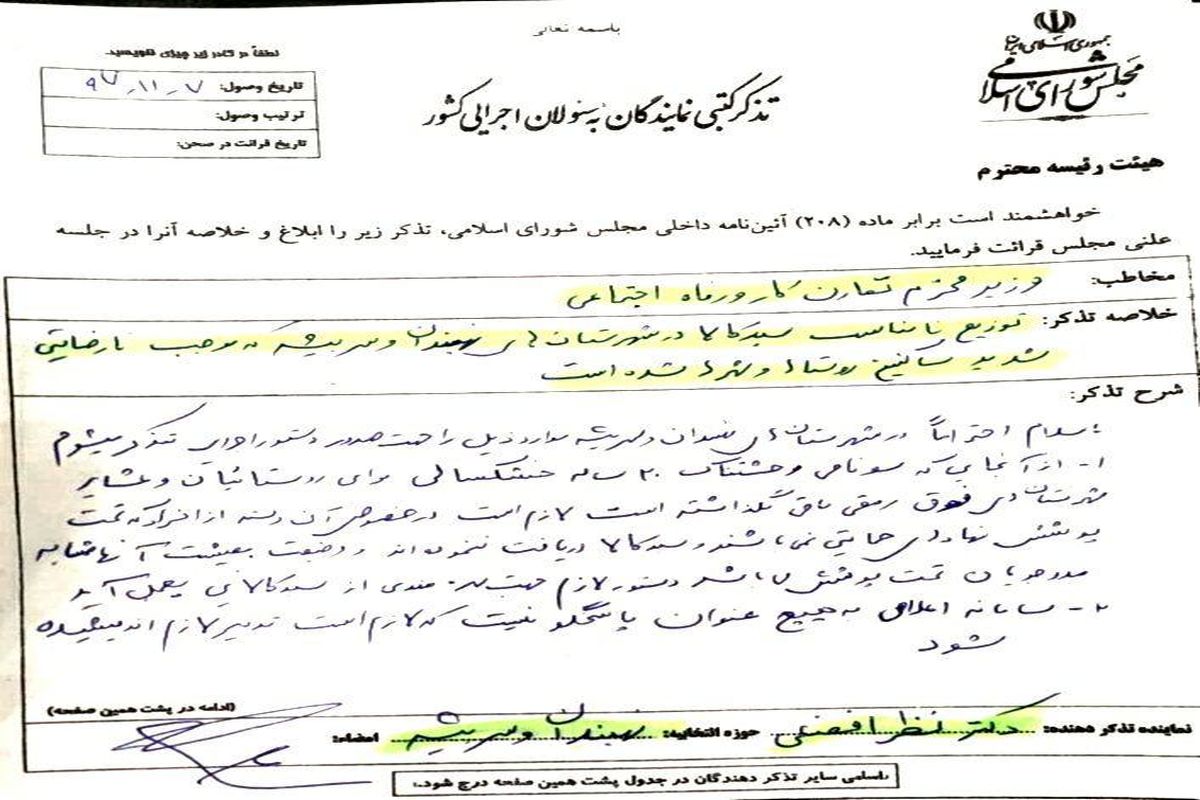 باسمه تعالی
جمهوری اسلامی ایران
مجلس شورای اسلامی
تذکر کتبی نمایندگان به مسئولان اجرایی کشور
لطفاً در کادر زیر چیزی ننویسید.
تاریخ وصول: ۹۷-۱۱-۷
ترتیب وصول:
تاریخ قرائت در صحن:
هیئت رئیسه محترم
خواهشمند است برابر ماده (۲۰۸) آئین‌نامه داخلی مجلس شورای اسلامی، تذکر زیر را ابلاغ و خلاصه آنرا در جلسه
علنی مجلس قرائت فرمایید.
مخاطب: وزیر محترم تعاون کار و رفاه اجتماعی
خلاصه تذکر: توزیع نامناسب سبد کالا در شهرستان های نهبندان و سربیشه که موجب نارضایتی
شدید ساکنین روستاها و شهرها شده است
شرح تذکر:
با سلام احتراماً در شهرستان های نهبندان و سربیشه موارد ذیل را جهت صدور دستور اجرایی تذکر میشوم
۱- از آنجایی که سونامی وحشتناک ۲۰ ساله خشکسالی برای روستائیان و عشایر
شهرستان های فوق رمقی باقی نگذاشته است لازم است در خصوص آن دسته از افراد که تحت
پوشش نهادهای حمایتی نمی باشند و سبد کالا دریافت ننموده اند و وضعیت معیشت آنها مشابه
مددجویان تحت پوشش می باشد دستور لازم جهت بهره مندی از سبد کالایی بعمل آید
۲- سامانه اعلامی به هیچ عنوان پاسخگو نیست که لازم است تدبیر لازم اندیشیده
شود
(ادامه در پشت همین صفحه)
نماینده تذکر دهنده: دکتر نظر افضلی حوزه انتخابیه: نهبندان و سربیشه امضاء:
اسامی سایر تذکر دهندگان در جدول پشت همین صفحه درج شود.